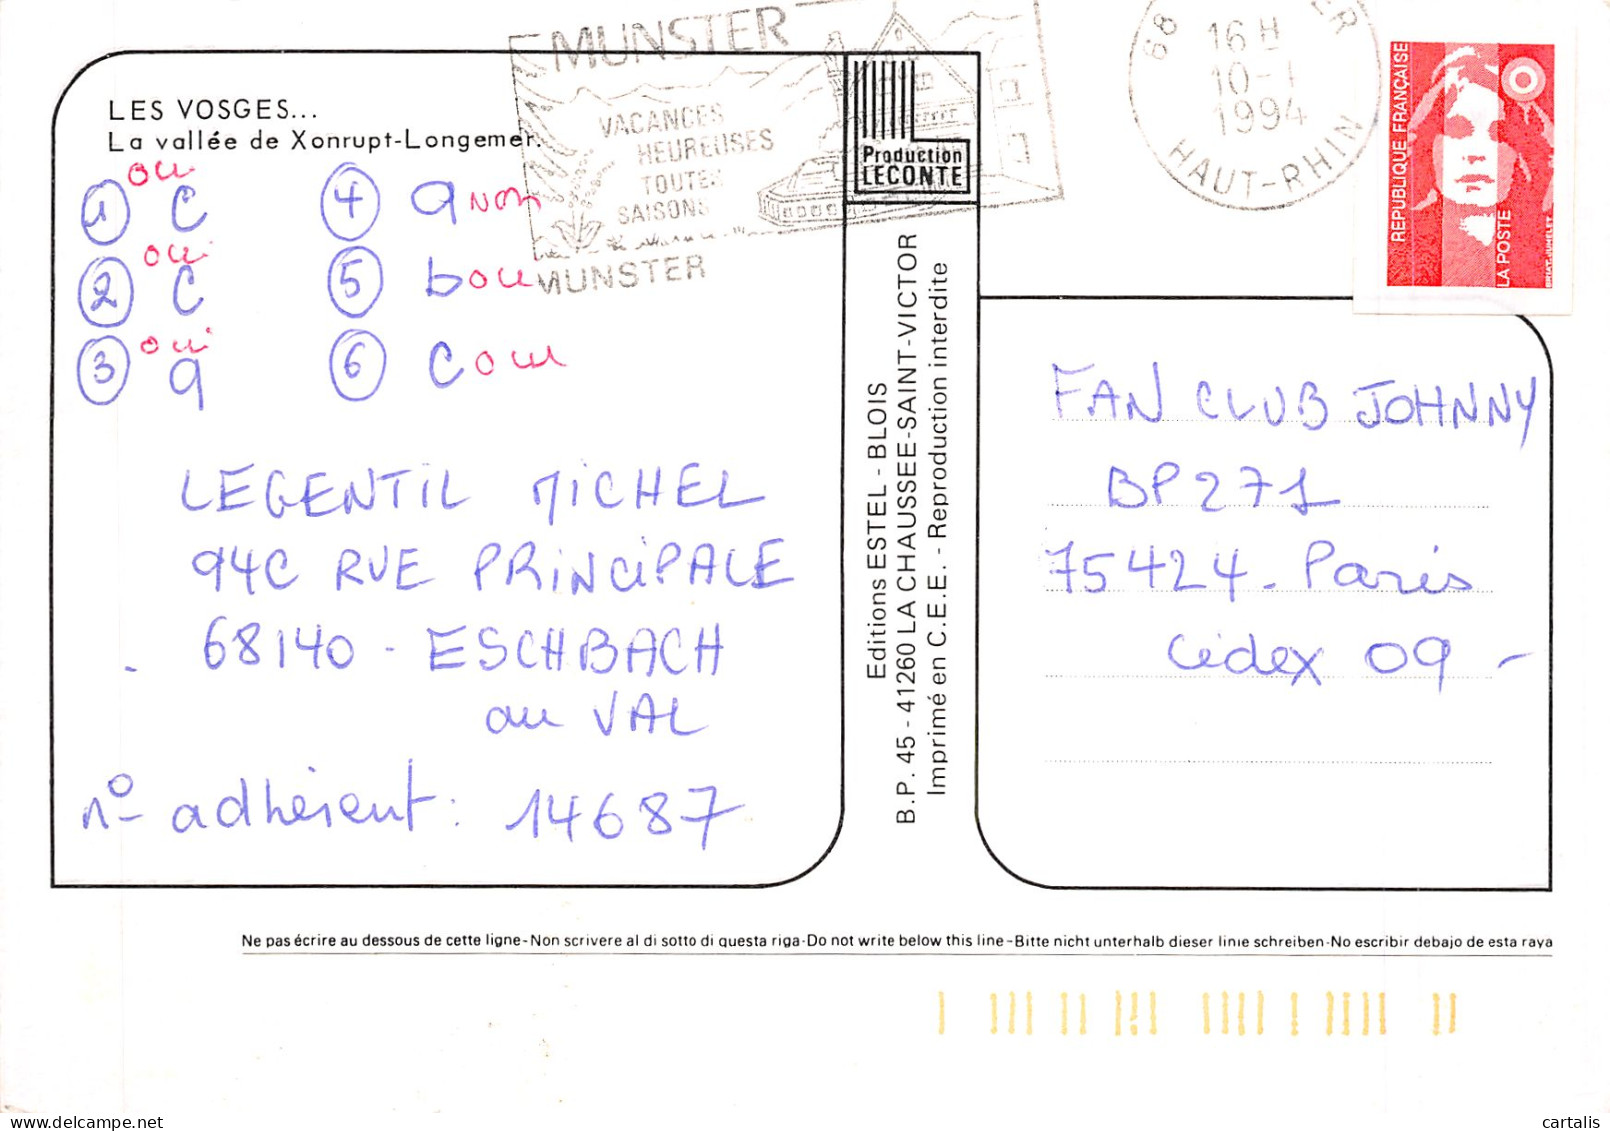 MUNSTER
VACANCES
HEUREUSES
TOUTES
SAISONS
MUNSTER
68
16 H
10-1
1994
HAUT-RHIN
REPUBLIQUE FRANÇAISE
LA POSTE
LES VOSGES...
La vallée de Xonrupt-Longemer.
Production
LECONTE
1 oui c
4 a non
2 oui c
5 b oui
3 oui a
6 c oui
LEGENTIL MICHEL
94C RUE PRINCIPALE
68140 - ESCHBACH
au VAL
n° adhérent : 14687
Editions ESTEL - BLOIS
B.P. 45 - 41260 LA CHAUSSEE-SAINT-VICTOR
Imprimé en C.E.E. - Reproduction interdite
FAN CLUB JOHNNY
BP 271
75424 - Paris
Cédex 09 -
Ne pas écrire au dessous de cette ligne - Non scrivere al di sotto di questa riga - Do not write below this line - Bitte nicht unterhalb dieser linie schreiben - No escribir debajo de esta raya
cartalis